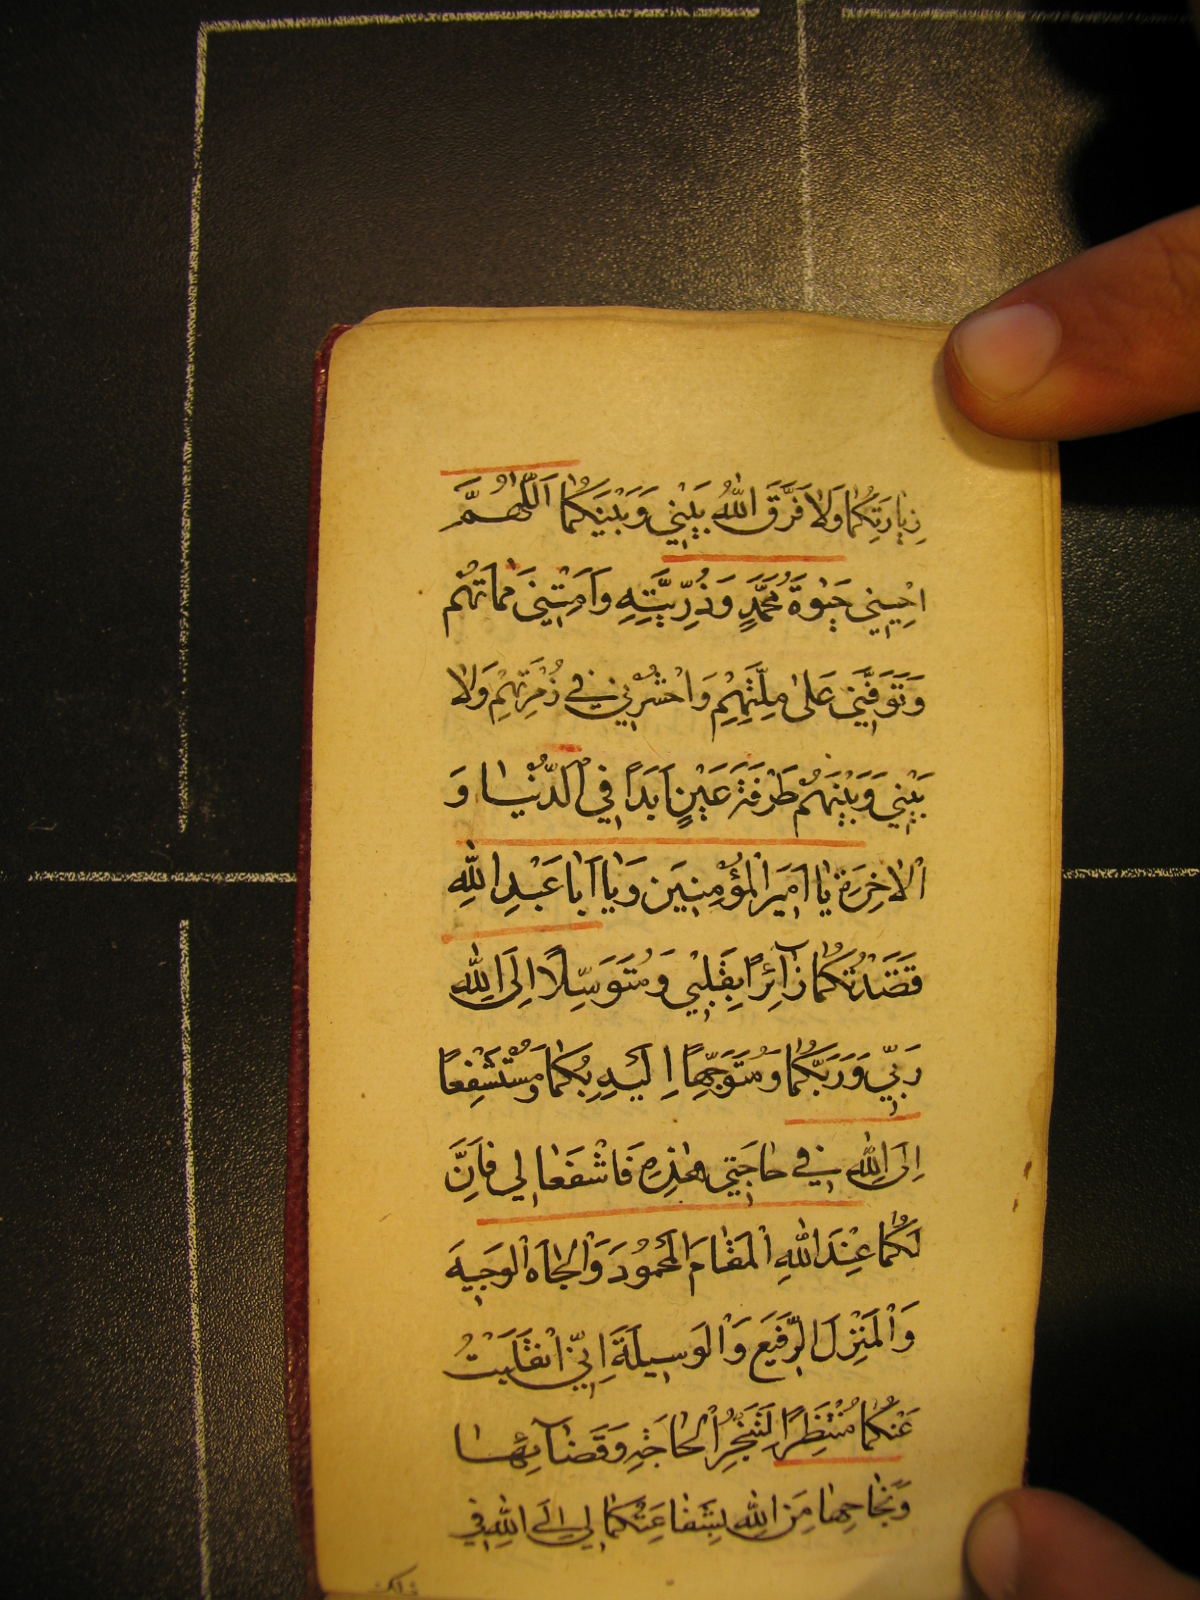 زِيارَتِكُما وَلا فَرَّقَ اللّٰهُ بَيْنِي وَبَيْنَكُمَا اَللّٰهُمَّ
اَحْيِيني حَيٰوةَ مُحَمَّدٍ وَذُرِّيَّتِهِ وَاَمِتْنِي مَماتَهُم
وَتَوَفَّنِي عَلىٰ مِلَّتِهِمِ وَاحْشُرْنِي فِي زُمْرَتِهِمِ وَلا
بَيْنِي وَبَيْنَهُمْ طَرْفَةَ عَيْنٍ اَبَدًا فِي الدُّنْيا وَ
الْاٰخِرَةِ يا اَمِيرَ الْمُؤْمِنِيَن وَيا اَبا عَبْدِ اللّٰهِ
قَصَدْتُكُما زآئِرًا بِقَلْبِي وَمُتَوَسِّلًا اِلَى اللّٰهِ
رَبِّي وَرَبِّكُما وَمُتَوَجِّهًا اِلَيْهِ بِكُما وَمُسْتَشْفِعًا
اِلَى اللّٰهِ فِي حاجَتِي هٰذِهِ فَاشْفَعا لِي فَاِنَّ
لَكُما عِنْدَ اللّٰهِ الْمَقامَ الْمَحْمُودَ وَالْجاهَ الْوَجِيهَ
وَالْمَنْزِلَ الرَّفِيعَ وَالْوَسِيلَةَ اِنِّي انْقَلَبْتُ
عَنْكُما مُنْتَظِرًا لِتَنَجُّزِ الْحاجَةِ وَقَضآئِها
وَنَجاحِها مِنَ اللّٰهِ بِشَفاعَتِكُما لِي اِلَى اللّٰهِ فِي
ذلك